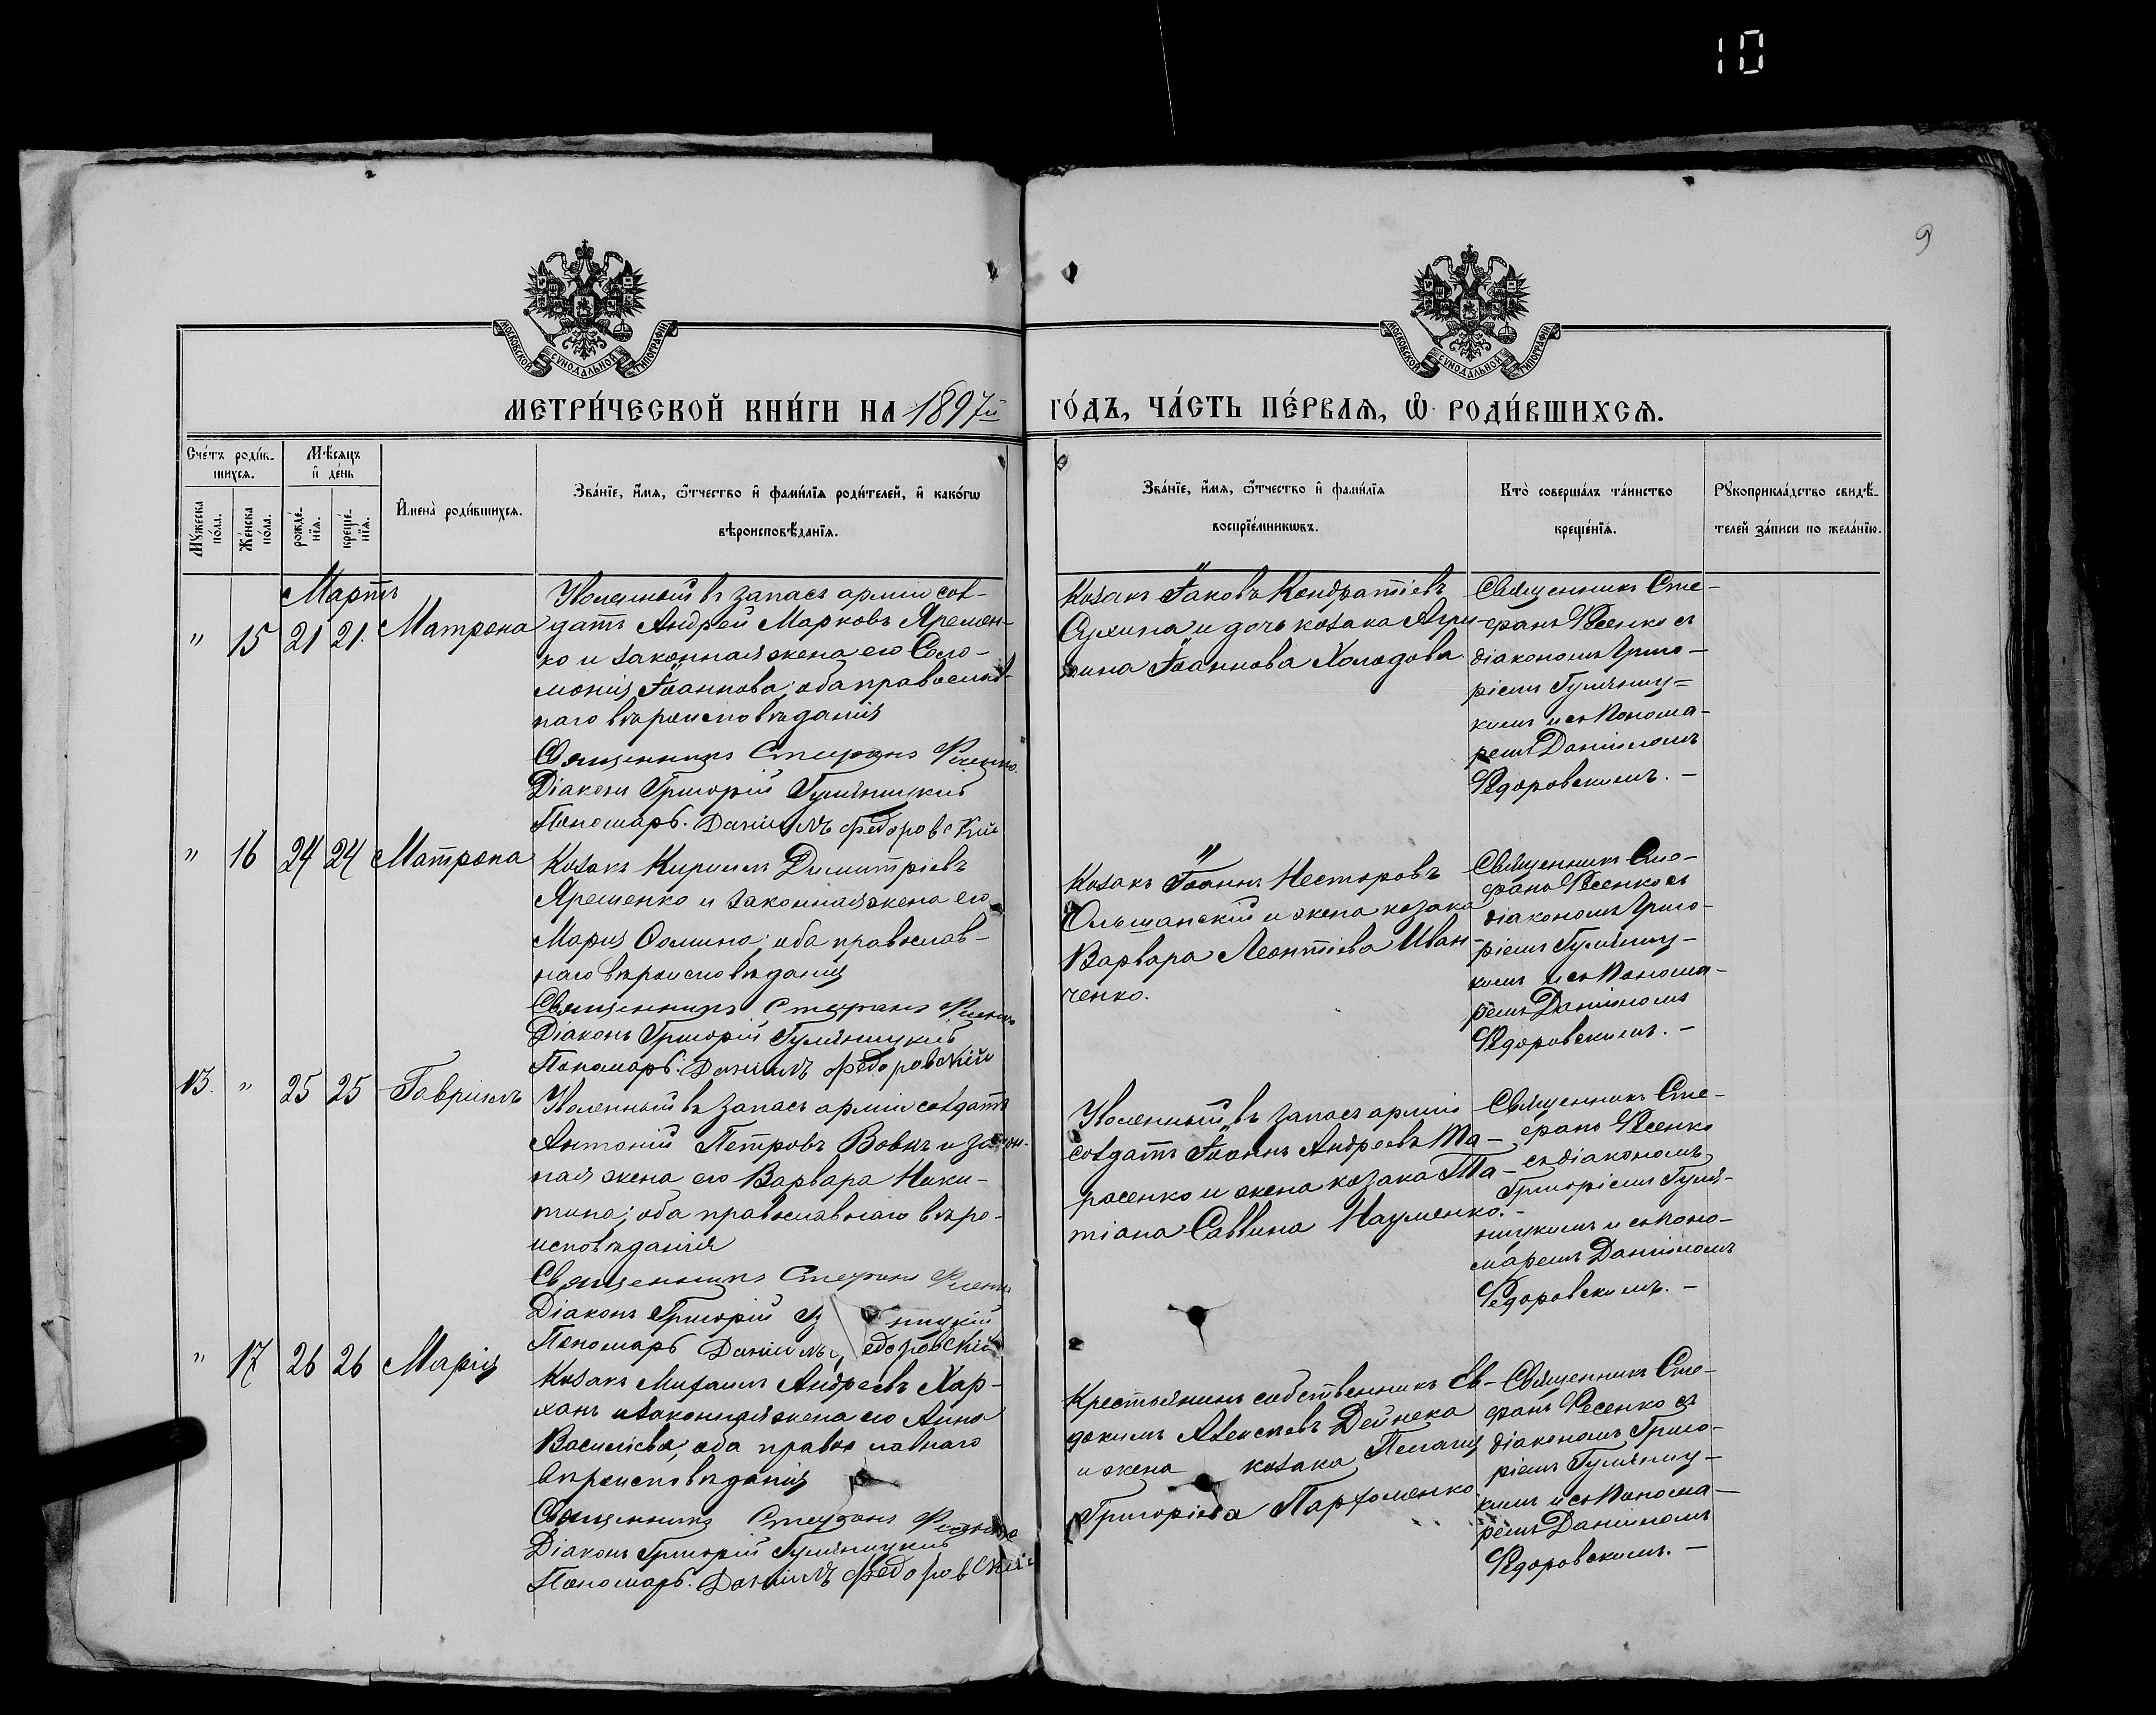 10
9
МОСКОВСКОЙ СѴНОДАЛЬНОЙ ТИПОГРАФІИ
МОСКОВСКОЙ СѴНОДАЛЬНОЙ ТИПОГРАФІИ
МЕТРИ́ЧЕСКОЙ КНИ́ГИ НА 1897й
ГО́ДЪ, ЧА́СТЬ ПЕ́РВАѦ, Ѡ҆ РОДИ́ВШИХСѦ.
Сче́тъ роди́в-
шихсѧ.
Мꙋ́жеска
по́ла.
Же́нска
по́ла.
Мѣ́сѧцъ
и҆ де́нь
рожде́-
нїѧ.
креще́-
нїѧ.
И҆мена̀ роди́вшихсѧ.
Зва́нїе, и҆́мѧ, ѻ҆́тчество и҆ фами́лїѧ роди́телей, и҆ како́гѡ
вѣроисповѣ́данїѧ.
Зва́нїе, и҆́мѧ, ѻ҆́тчество и҆ фами́лїѧ
воспрїе́мникѡвъ.
Кто̀ соверша́лъ та́инство
креще́нїѧ.
Рꙋкоприкла́дство свидѣ́-
телей за́писи по жела́нїю.
Мартъ
" 15 21 21. Матрона
Уволенный въ запасъ арміи сол-
датъ Андрей Марковъ Яремен-
ко и законная жена его Соло-
монія Іоаннова; оба православ-
наго вѣроисповѣданія
Священникъ Стефанъ Фесенко.
Діаконъ Григорій Гуляницкій
Пономарь. Даніилъ Федоровскій
Козакъ Іаковъ Кондратіевъ
Сухина и дочь козака Агри-
пина Іоаннова Холодова
Священникъ Сте-
фанъ Фесенко съ
діакономъ Григо-
ріемъ Гуляниц-
кимъ и съ Понома-
ремъ Даніиломъ
Федоровскимъ. —
" 16 24 24 Матрона
Козакъ Кириллъ Димитріевъ
Яременко и законная жена его
Марія Ѳомина; оба православ-
наго вѣроисповѣданія
Священникъ Стефанъ Фесенко
Діаконъ Григорій Гуляницкій
Пономарь. Даніилъ Федоровскій
Козакъ Іоаннъ Несторовъ
Ольшанскій и жена козака
Варвара Леонтіева Иван-
ченко.
Священникъ Сте-
фанъ Фесенко съ
діакономъ Григо-
ріемъ Гуляниц-
кимъ и съ Понома-
ремъ Даніиломъ
Федоровскимъ. —
13. " 25 25 Гавріилъ
Уволенный въ запасъ арміи солдатъ
Антоній Петровъ Вовкъ и закон-
ная жена его Варвара Ники-
тина; оба православнаго вѣро-
исповѣданія
Священникъ Стефанъ Фесенко
Діаконъ Григорій Гу ницкій
Пономарь Даніилъ едоровскій
Уволенный въ запасъ арміи
солдатъ Іоаннъ Андреевъ Та-
расенко и жена козака Та-
тіана Саввина Науменко. -
Священникъ Сте-
фанъ Фесенко
съ діакономъ
Григоріемъ Гуля-
ницкимъ и съ Поно-
маремъ Даніиломъ
Федоровскимъ. —
" 17 26 26 Марія
Козакъ Михаилъ Андреевъ Хар-
ханъ и законная жена его Анна
Васильева; оба православнаго
вѣроисповѣданія
Священникъ Стефанъ Фесенко
Діаконъ Григорій Гуляницкій
Пономарь. Даніилъ Федоровскій
Крестьянинъ собственникъ Ев-
докимъ Алексѣевъ Дейнека
и жена козака Пелагія
Григоріева Парфоменко
Священникъ Сте-
фанъ Фесенко съ
діакономъ Григо-
ріемъ Гуляниц-
кимъ и съ Понома-
ремъ Даніиломъ
Федоровскимъ. —